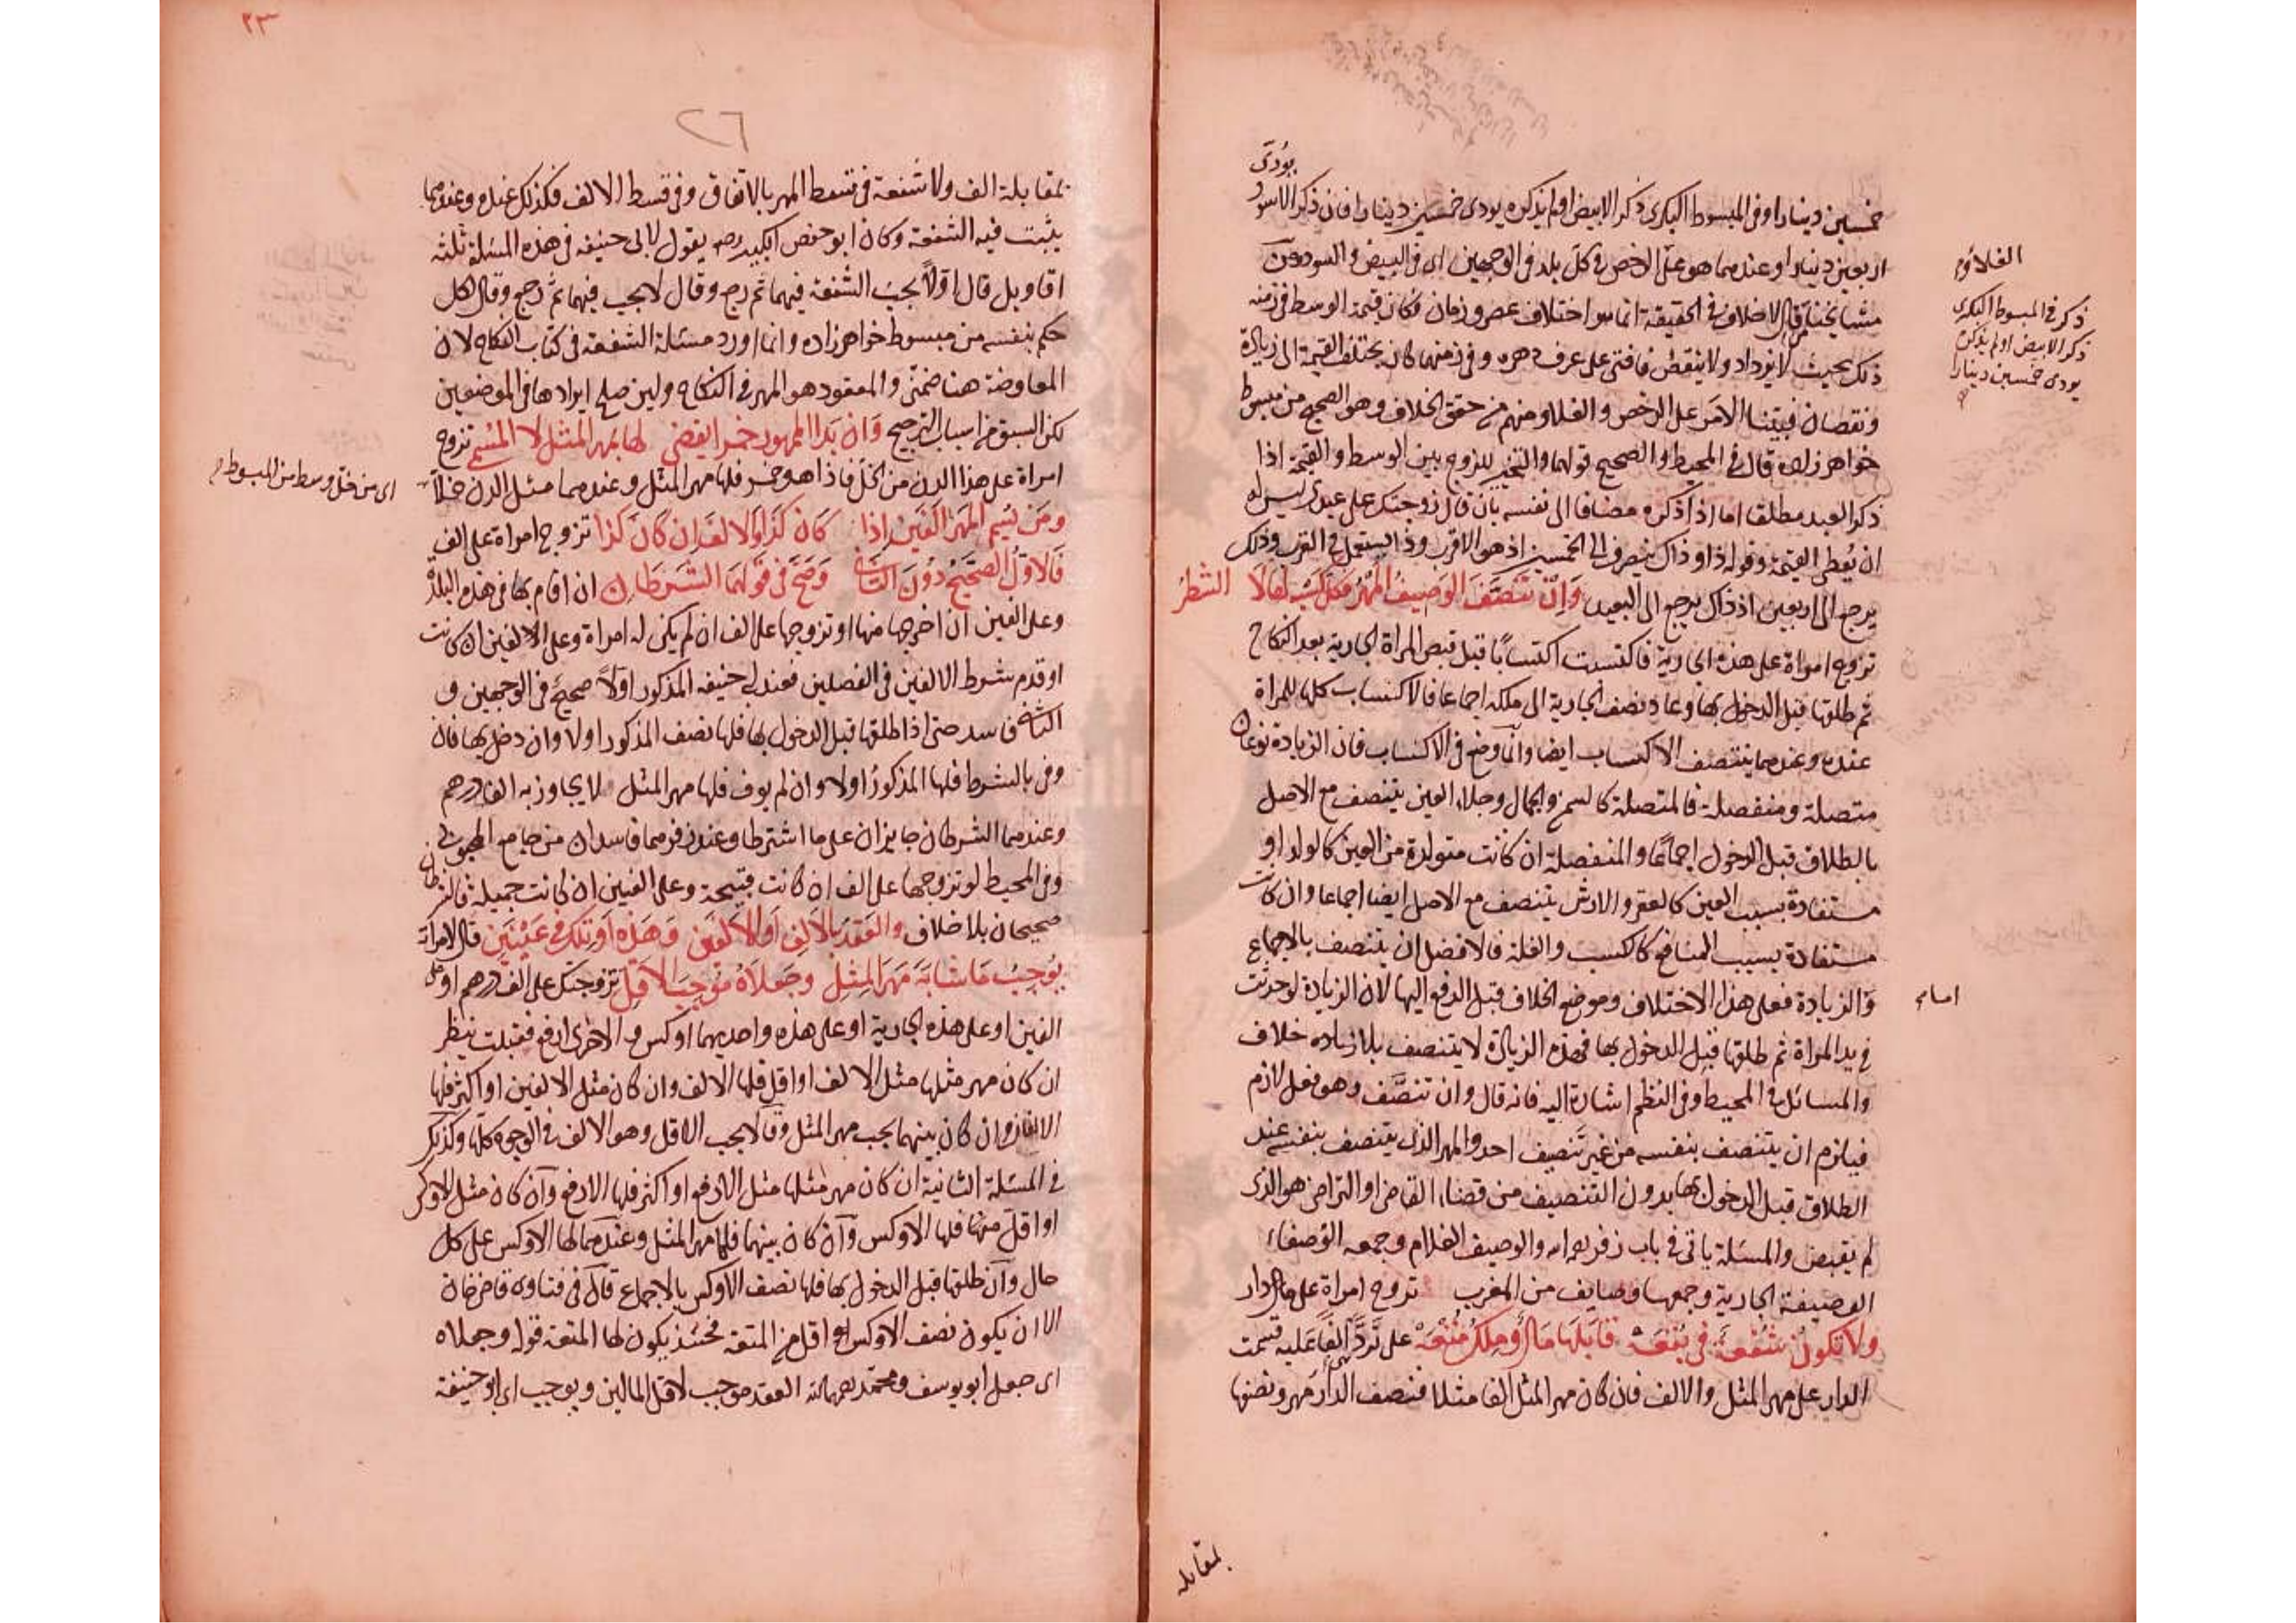 يؤدى
خمسين دينارا وفى المبسوط البكرى ذكر الابيض او لم يذكره يودى خمسين دينارا فان ذكر الاسود
اربعين دينارا وعندهما هو على الرخص فى كل بلد فى الوجهين اى فى البيض والسود ومن
مشايخنا من قال الاختلاف فى الحقيقة انما هو اختلاف عصر وزمان فكان قيمة الوسط فى زمنه
ذلك بحيث لا يزداد ولا ينقص فافتى على عرف دهره وفى زمنهما كان يختلف القيمة الى زيادة
ونقصان فبيتنا الامر على الرخص والغلاء ومنهم من حقق الخلاف وهو الصحيح من مبسوط
خواهر زاده قال فى المحيط والصحيح قولهما والتخير للزوج بين الوسط والقيمة اذا
ذكر العبد مطلقا اما اذا ذكره مضافا الى نفسه بان قال زوجتك على عبدى ليس له
ان يعطى القيمة وقوله ذا وذاك ينصرف الى الخمسين اذ هو الاقرب وذا يستعمل فى القرب وذلك
يرجع الى اربعين اذ ذاك يرجع الى البعيد وان تنصف الوصيف المهر فكل كسبه لها لا الشطر
تزوج امراة على هذه الجارية فاكتسبت اكتسابا قبل قبض المراة الجارية بعد النكاح
ثم طلقها قبل الدخول بها وعاد نصف الجارية الى ملكه اجماعا فالاكتساب كلها للمراة
عنده وعندهما يتنصف الاكتساب ايضا وانما وضع فى الاكتساب فان الزيادة نوعان
متصلة ومنفصلة فالمتصلة كالسمن والجمال وجلاء العين يتنصف مع الاصل
بالطلاق قبل الدخول اجماعا والمنفصلة ان كانت متولدة من العين كالولد او
مستفادة بسبب العين كالعقر والارش يتنصف مع الاصل ايضا اجماعا وان كانت
مستفادة بسبب المنافع كالكسب والغلة فالافضل ان يتنصف بالاجماع
والزيادة فعلى هذا الاختلاف وموضع الخلاف قبل الدفع اليها لان الزيادة لو حدثت
فى يد المراة ثم طلقها قبل الدخول بها فهذه الزيادة لا يتنصف بلا زياده خلاف
والمسائل فى المحيط وفى النظم اشارة اليه فانه قال وان تنصف وهو فعل لازم
فيلزم ان يتنصف بنفسه من غير تنصيف احد والمهر الذى يتنصف بنفسه عند
الطلاق قبل الدخول بها بدون التنصيف من قضاء القاضى او التراضى هو الذى
لم يقبض والمسئلة ياتى فى باب زفر رحمه الله والوصيف الغلام وجمعه الوصفاء
الوصيفة الجارية وجمعها وصايف من المغرب تزوج امراة على دار
ولا تكون شفعة فى بقعة قابلها مال وملك متعة على ترد الفا عليه قسمت
الدار على مهر المثل والالف فان كان مهر المثل الفا مثلا فنصف الدار مهر ونصفها
الغلاء
ذكر فى المبسوط البكرى
ذكر الابيض او لم يذكره
يودى خمسين دينارا
اما
بمقابلة
٢٣
٢٦
بمقابلة الف ولا شفعة فى قسط المهر بالاتفاق وفى قسط الالف فكذلك عنده وعندهما
يثبت فيه الشفعة وكان ابو حفص الكبير رحمه يقول لابى حنيفه فى هذه المسئلة ثلثه
اقاويل قال اولا يجب الشفعة فيهما ثم رجع وقال لا يجب فيهما ثم رجع وقال لكل
حكم بنفسه من مبسوط خواهر زاده وانما اورد مسئلة الشفعة فى كتاب النكاح لان
المعاوضة هنا ضمنى والمعقود هو المهر فى النكاح ولين صلح ايرادها فى الموضعين
لكن السبق من اسباب الترجيح وان بدا الممهور خمرا يقضى لها بمهر المثل لا المسمى تزوج
امراة على هذا الدن من الخل فاذا هو خمر فلها مهر المثل وعندهما مثل الدن خلا
ومن يسم المهر الفين اذا كان كذا والالف ان كان كذا تزوج امراة على الف
فالاول الصحيح دون الثانى وصح فى قولهما الشرطان ان اقام بها فى هذه البلدة
وعلى الفين ان اخرجها منها او تزوجها على الف ان لم يكن له امراة وعلى الالفين ان كانت
او قدم شرط الالفين فى الفصلين فعند ابى حنيفه المذكور اولا صحيح فى الوجهين و
الثانى فاسد حتى اذا طلقها قبل الدخول بها فلها نصف المذكور اولا وان دخل بها فان
وفى بالشرط فلها المذكور اولا وان لم يوف فلها مهر المثل لا يجاوز به الف درهم
وعندهما الشرطان جايزان على ما اشترطا وعند زفر هما فاسدان من جامع المحبوبى
وفى المحيط لو تزوجها على الف ان كانت قبيحة وعلى الفين ان كانت جميلة فالشرطان
صحيحان بلا خلاف والعقد بالالف او الالفين وهذه او تلك فى عينين قال لامراة
يوجب ما شابه مهر المثل وجعلاه موجب الاقل تزوجتك على الف درهم او على
الفين او على هذه الجارية او على هذه واحديهما اوكس والاخرى ارفع فقبلت ينظر
ان كان مهر مثلها مثل الالف او اقل فلها الالف وان كان مثل الالفين او اكثر فلها
الالفان وان كان بينهما يجب مهر المثل وقالا يجب الاقل وهو الالف فى الوجوه كلها وكذلك
فى المسئلة الثانية ان كان مهر مثلها مثل الارفع او اكثر فلها الارفع وان كان مثل الاوكس
او اقل منها فلها الاوكس وان كان بينهما فلها مهر المثل وعندهما لها الاوكس على كل
حال وان طلقها قبل الدخول بها فلها نصف الاوكس بالاجماع قال فى فتاوى قاضى خان
الا ان يكون نصف الاوكس اقل من المتعة فحينئذ يكون لها المتعة قوله وجعلاه
اى جعل ابو يوسف ومحمد رحمهما الله العقد موجب لاقل المالين ويوجب اى ابو حنيفة
اى من خل وسط من المبسوط